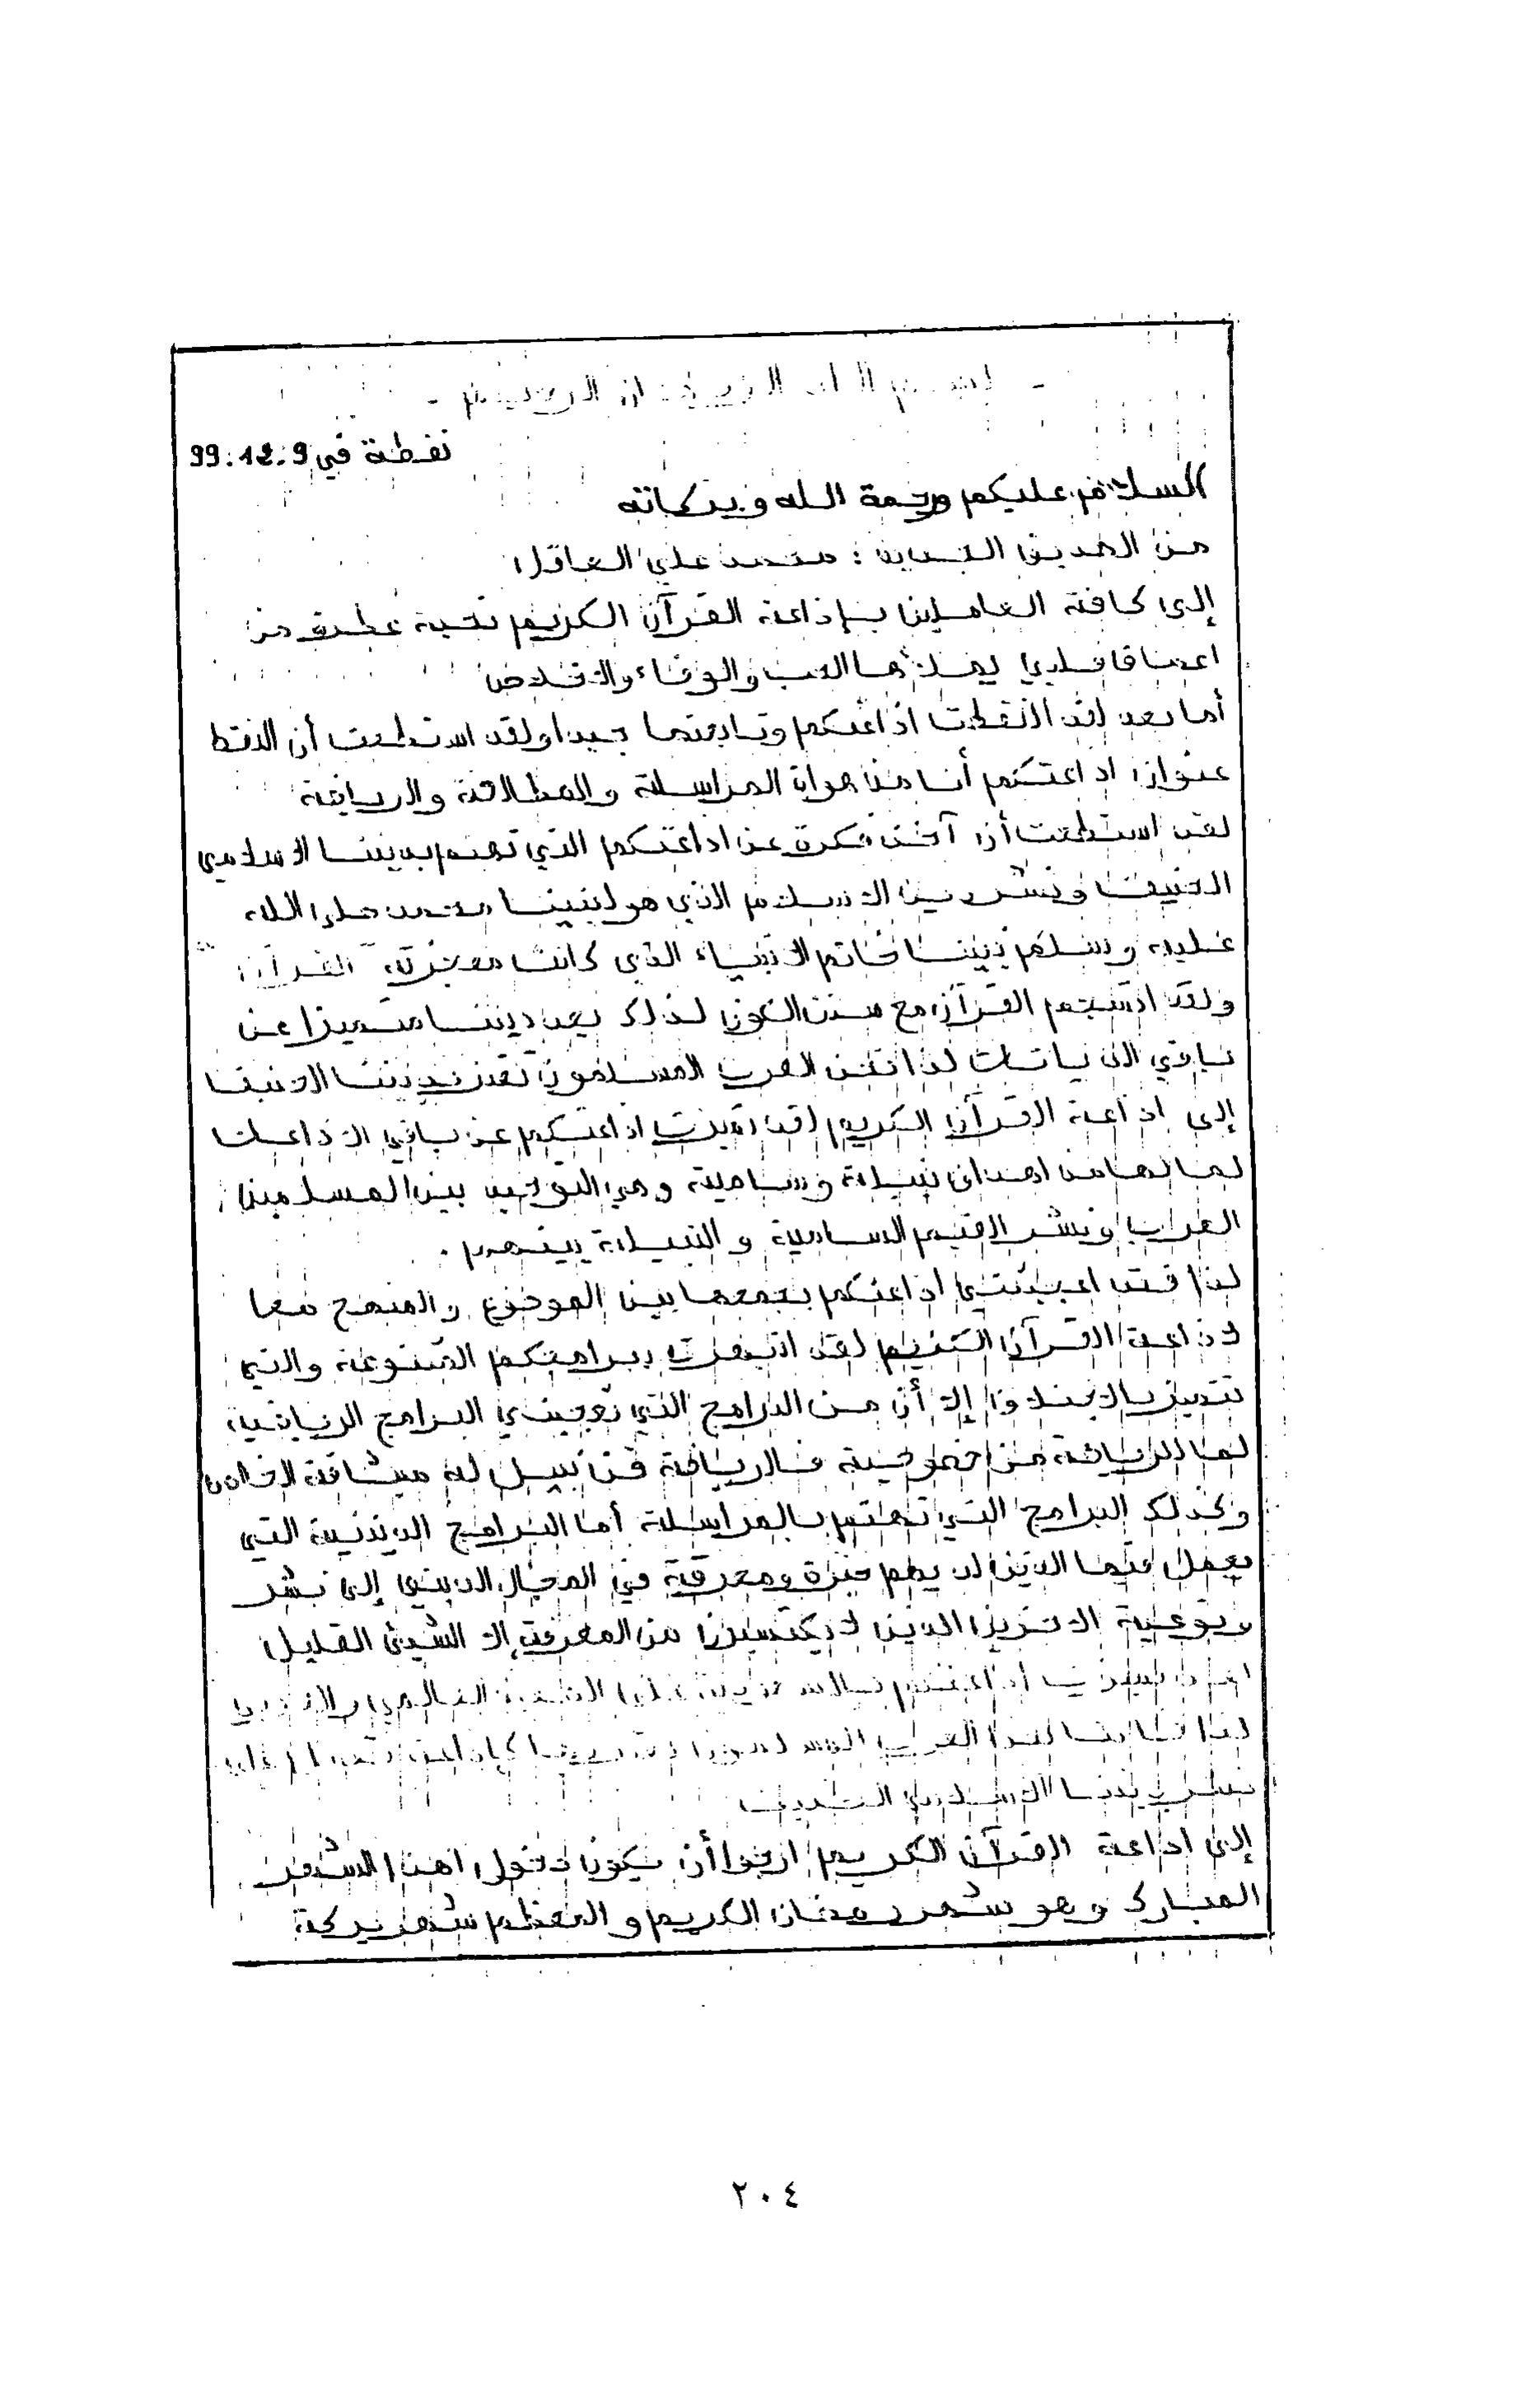 - بسم الله الرحمان الرحيم -
نفطة في 9.12.99
السلام عليكم ورحمة الله وبركاته
من الصديق : محمد علي العاقل
إلى كافة العاملين بإذاعة القرآن الكريم تحية عطرة من
اعماق قلبي يملأها الحب والوفاء والاخلاص
أما بعد لقد التقطت اذاعتكم وتابعتها جيدا ولقد استطعت أن التقط
عنوان اذاعتكم أنا من هواة المراسلة والمطالعة والرياضة
لقد استطعت أن آخذ فكرة عن اذاعتكم الذي تهتم بديننا الاسلامي
الحنيف ونشر دين الاسلام الذي هو لنبينا محمد صلى الله
عليه وسلم نبينا خاتم الانبياء الذي كانت معجزته "القرآن"
ولقد انسجم القرآن مع سنن الكون لذلك يعد ديننا متميزا عن
باقي الديانات لذا نحن العرب المسلمون نعتز بديننا الحنيف
إلى اذاعة القرآن الكريم لقد تميزت اذاعتكم عن باقي الاذاعات
لما لها من اهداف نبيلة وسامية وهي التوحيد بين المسلمين
العرب ونشر القيم السامية والنبيلة بينهم .
لذا قد اعجبتني اذاعتكم بجمعها بين الموضوع والمنهج معا
لاذاعة القرآن الكريم لقد انبهرت ببرامجكم المتنوعة والتي
تتميز بالإ إلا أن من البرامج التي تعجبني البرامج الرياضية
لما للرياضة من خصوصية فالرياضة فن نبيل له ميثاقه الخاص
وكذلك البرامج التي تهتم بالمراسلة أما البرامج الدينية التي
يعمل فيها الذين لديهم خبرة ومعرفة في المجال الديني إلى نشر
وتوعية الاخرين الذين لا يكتسبون من المعرفة إلا الشيئ القليل
اذاعتكم على العالمي والعربي
لذا العرب المسلمون
ديننا الاسلامي الحنيف
إلى اذاعة القرآن الكريم ارجوا أن يكون دخول هذا الشهر
المبارك وهو شهر رمضان الكريم والمعظم شهر بركة
٢٠٤